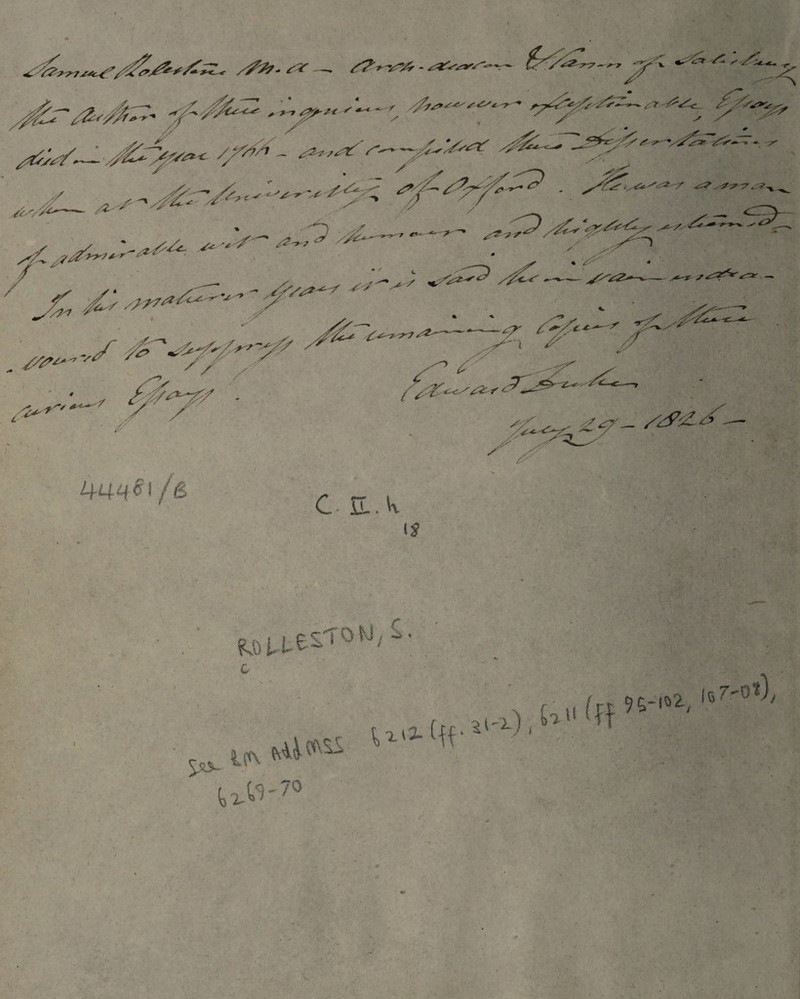 Samuel Rolestone M. A — Arch-deacon & Canon of Salisbury
the Author of these ingenious, however exceptionable, Essays
died in the year 1766 - and compiled these Dissertations
when at the University of Oxford. He was a man
of admirable wit and humour and highly esteemed -
In his maturer years it is said he in vain endea-
-voured to suppress the remaining Copies of these
curious Essays.
Edward Duke
July 29 - 1826 —
44481/B
C. II. h
18
ROLLESTON, S.
C
See BM Add MSS 6212 (ff. 31-2), 6211 (ff 95-102, 107-08),
6269-70